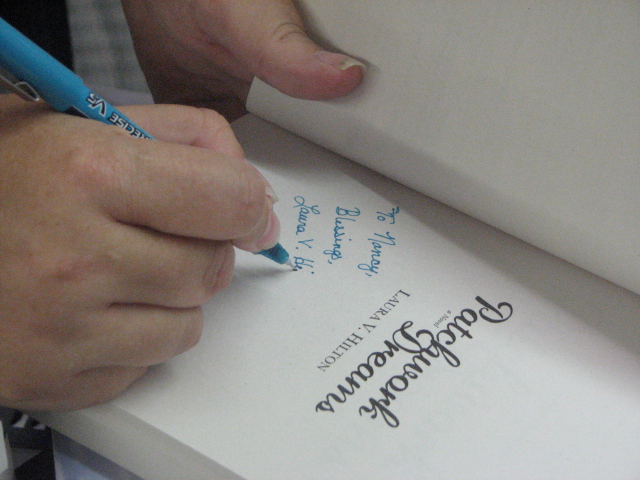 To Nancy,
Blessings,
Laura V. Hi
Patchwork
Dreams
a Novel
LAURA V. HILTON
PRECISE V5